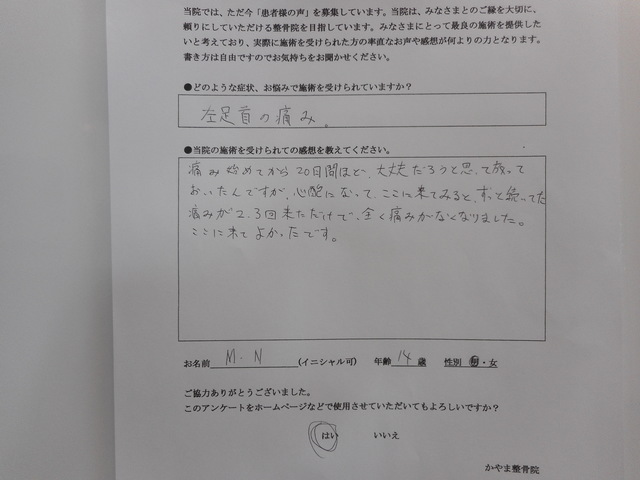 当院では、ただ今「患者様の声」を募集しています。当院は、みなさまとのご縁を大切に、
頼りにしていただける整骨院を目指しています。みなさまにとって最良の施術を提供した
いと考えており、実際に施術を受けられた方の率直なお声や感想が何よりの力となります。
書き方は自由ですのでお気持ちをお聞かせください。
●どのような症状、お悩みで施術を受けられていますか？
左足首の痛み。
●当院の施術を受けられての感想を教えてください。
痛み始めてから20日間ほど、大丈夫だろうと思って放って
おいたんですが、心配になって、ここに来てみると、ずっと続いてた
痛みが2、3回来ただけで、全く痛みがなくなりました。
ここに来てよかったです。
お名前 M・N (イニシャル可) 年齢 14 歳 性別 男・女
ご協力ありがとうございました。
このアンケートをホームページなどで使用させていただいてもよろしいですか？
はい いいえ
かやま整骨院